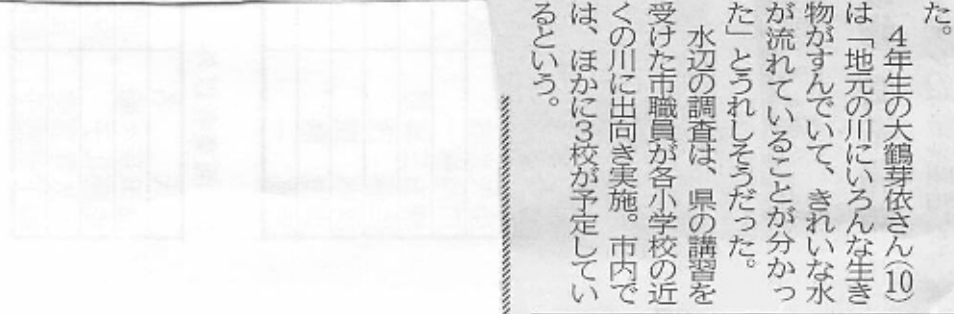 た。
　4年生の大鶴芽依さん(10)
は「地元の川にいろんな生き
物がすんでいて、きれいな水
が流れていることが分かっ
た」とうれしそうだった。
　水辺の調査は、県の講習を
受けた市職員が各小学校の近
くの川に出向き実施。市内で
は、ほかに3校が予定してい
るという。